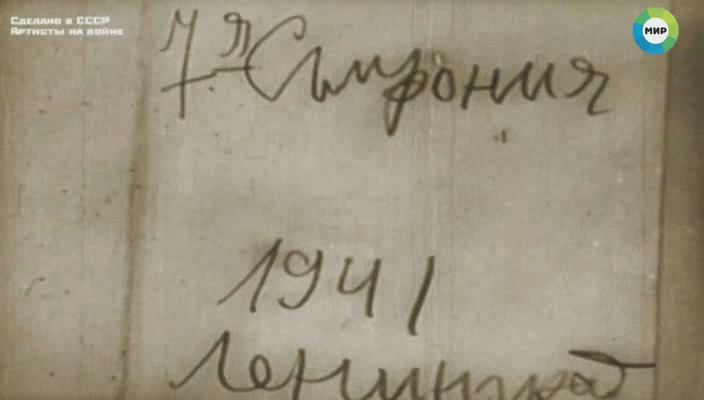 Сделано в СССР
Артисты на войне
МИР
7-я Симфония
1941
Ленинград